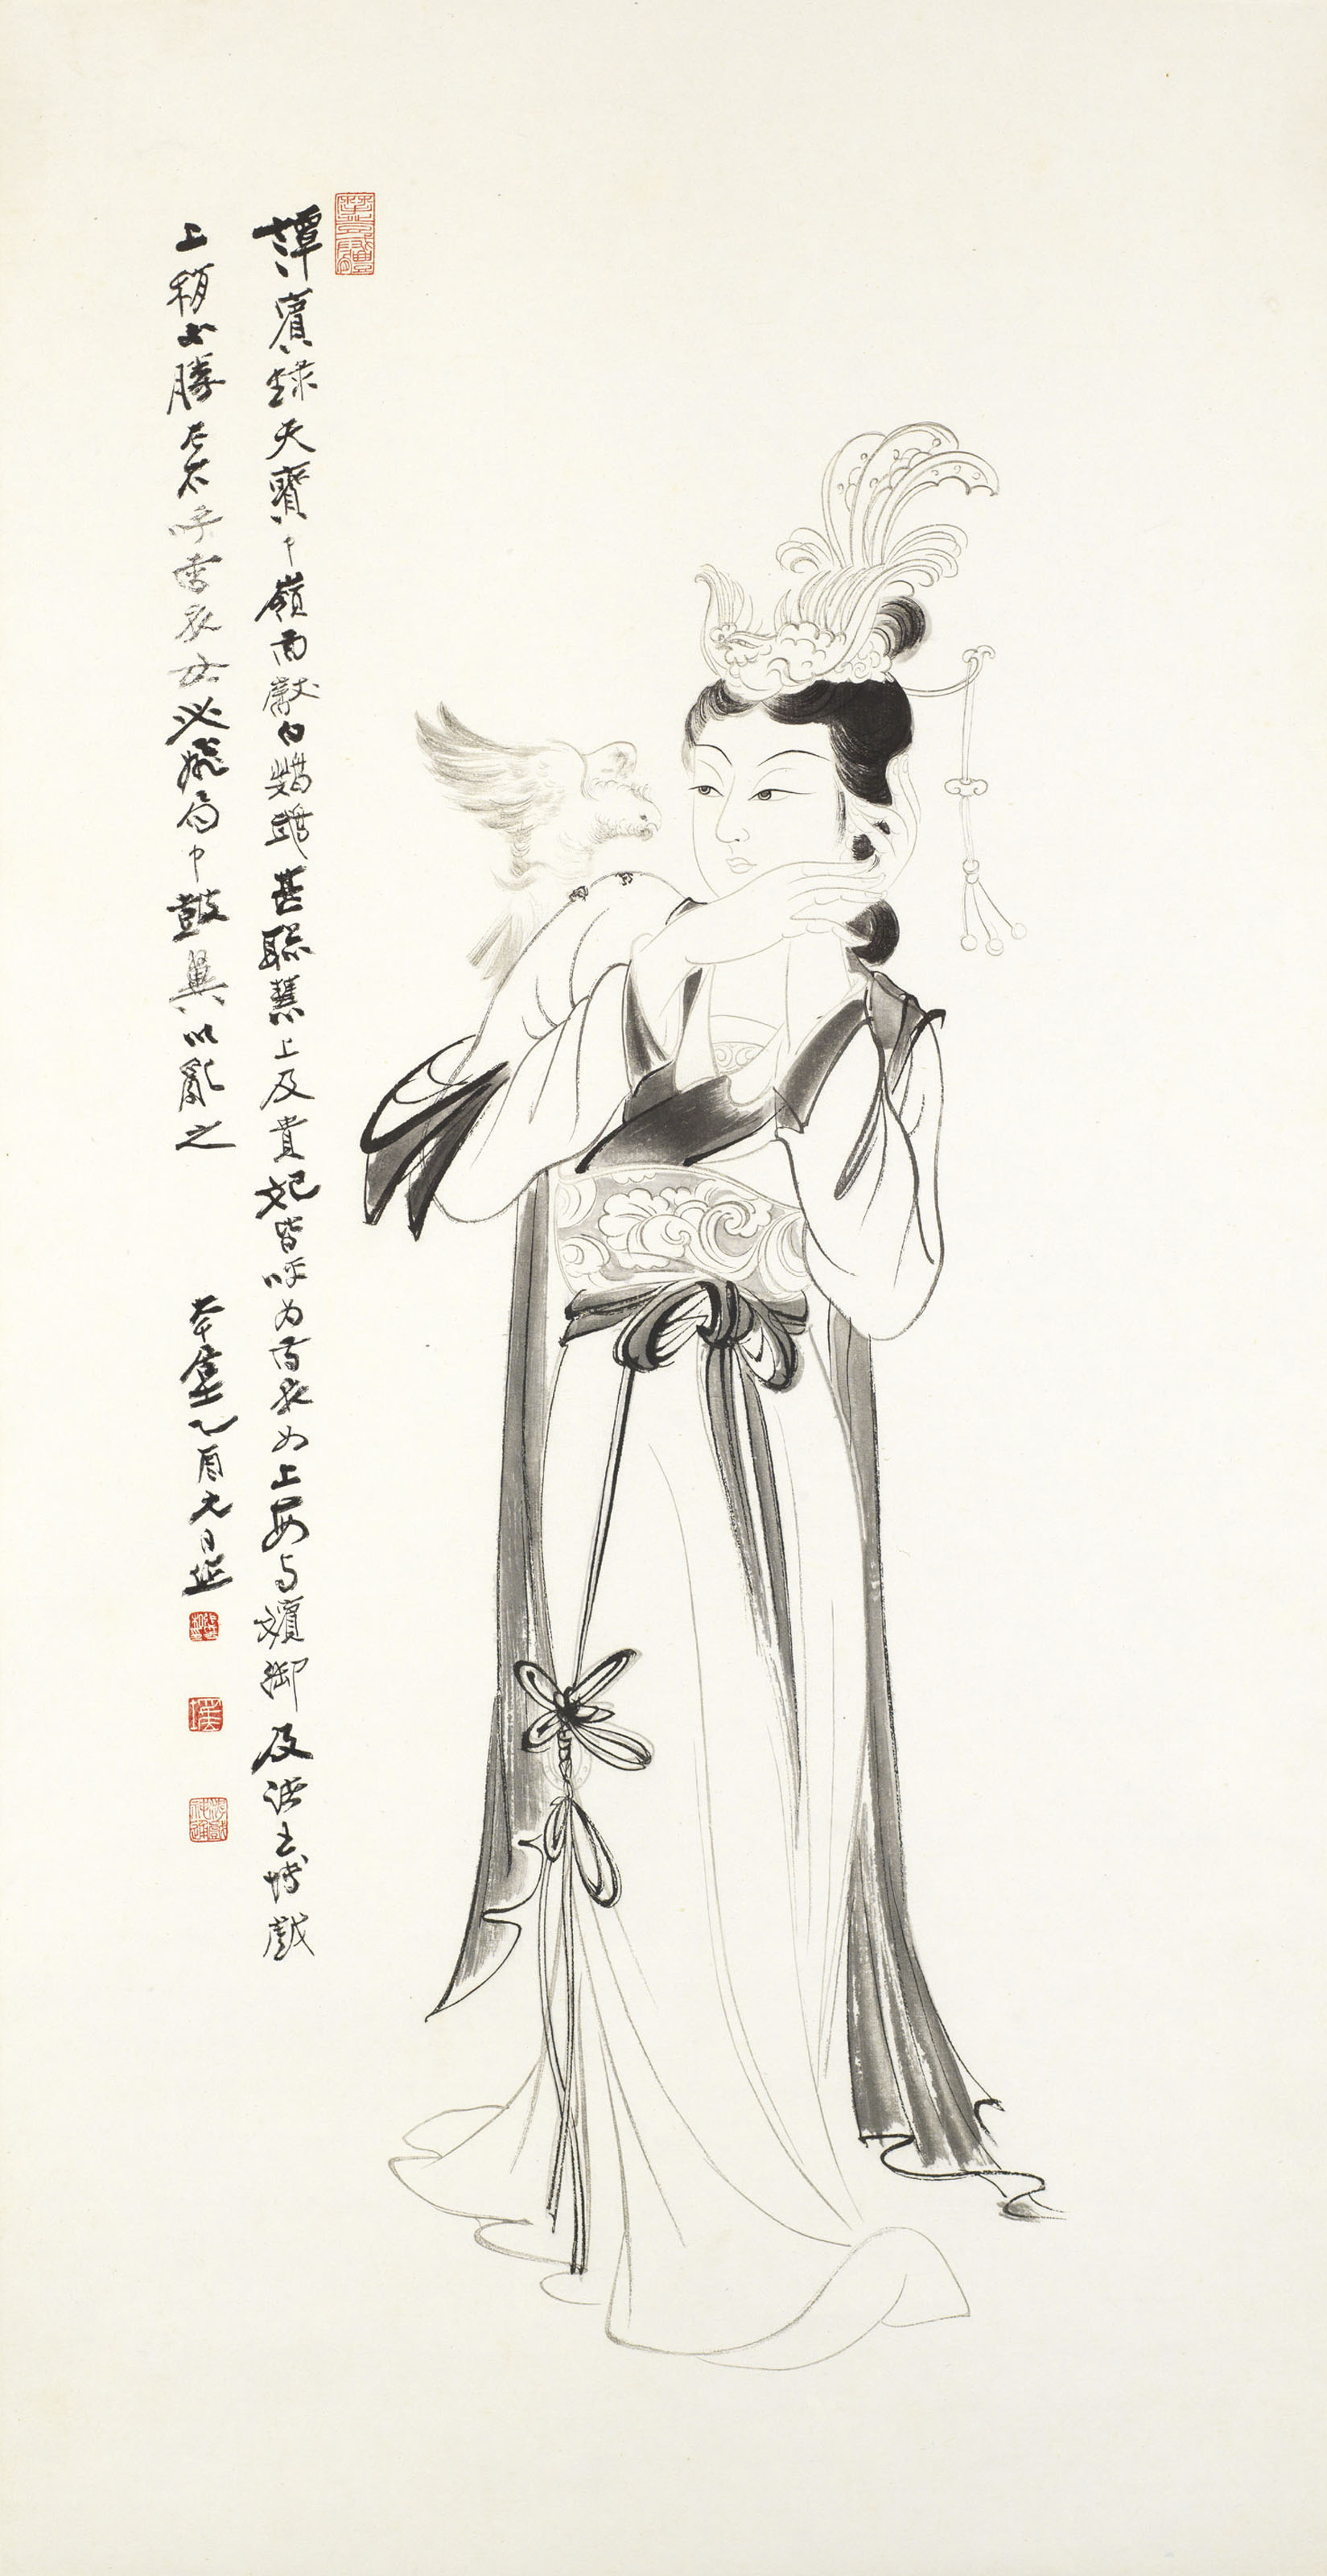 譚賓錄天寶中嶺南獻白鸚鵡甚聰慧上及貴妃皆呼為雪衣女上每與嬪御及諸王博戲
上稍不勝左右呼雪衣女必飛局中鼓翼以亂之
乙酉元日